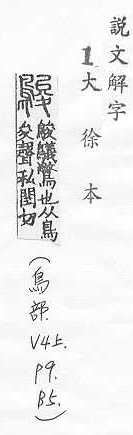 説文解字
1大徐本
鵔鸃鷩也从鳥
夋聲私閏切
(鳥部. V4上. p9. B5.)